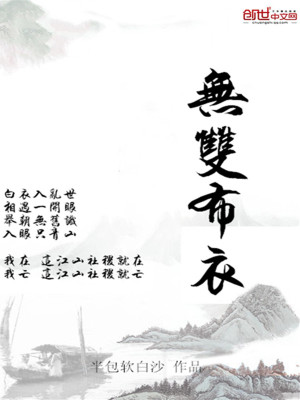 创世中文网
chuangshi.qq.com
無雙布衣
白衣入亂世
相遇一開眼
举朝無舊識
入眼只青山
我在 這江山社稷就在
我亡 這江山社稷就亡
半包软白沙 作品